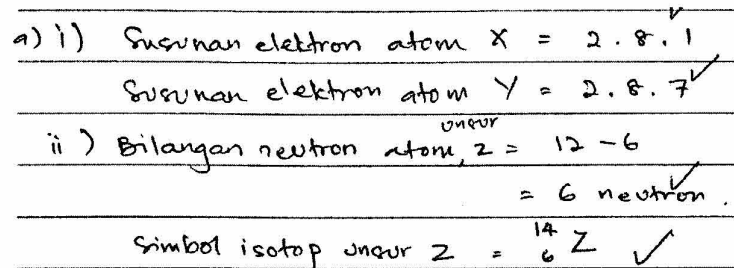 a) i) Susunan elektron atom X = 2.8.1
Susunan elektron atom Y = 2.8.7
ii) Bilangan neutron atom unsur Z = 12 - 6
= 6 neutron.
Simbol isotop unsur Z = ¹⁴₆Z